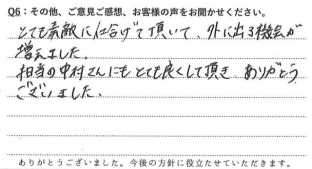 Q6：その他、ご意見ご感想、お客様の声をお聞かせください。
とても素敵に仕上げて頂いて、外に出る機会が
増えました。
担当の中村さんにもとても良くして頂き、ありがとう
ございました。
ありがとうございました。今後の方針に役立たせていただきます。